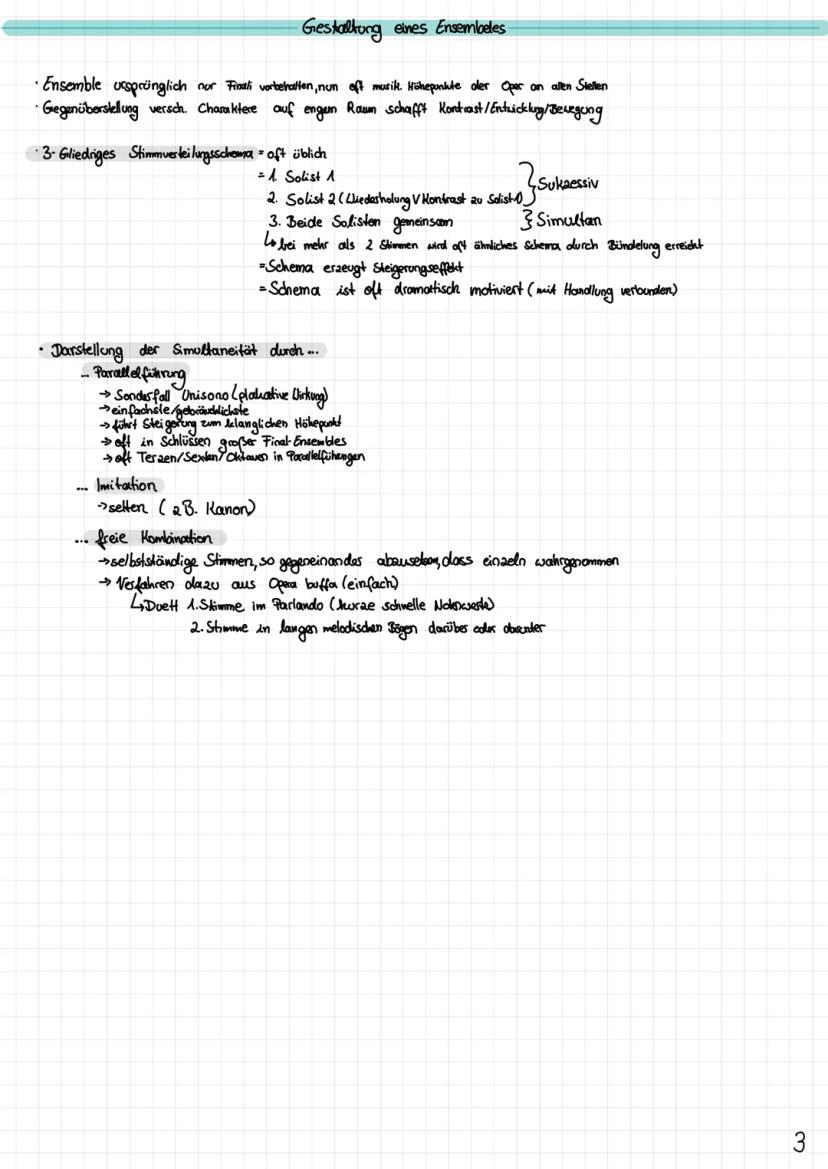 Gestaltung eines Ensembeles
· Ensemble ursprünglich nur Finali vorbehalten, nun oft musik. Höhepunkte der Oper an allen Stellen
· Gegenüberstellung versch. Charaktere auf engem Raum schafft Kontrast/Entwicklug/Bewegung
· 3-Gliedriges Stimmverteilungsschema = oft üblich
= 1. Solist 1
2. Solist 2 (Wiederholung V Kontrast zu Solist 1) } Sukzessiv
3. Beide Solisten gemeinsam } Simultan
↳ bei mehr als 2 Stimmen wird oft ähnliches Schema durch Bündelung erreicht
= Schema erzeugt Steigerungseffekt
= Schema ist oft dramatisch motiviert (mit Handlung verbunden)
· Darstellung der Simultaneität durch...
... Parallelführung
→ Sonderfall Unisono (plakative Wirkung)
→ einfachste/gebräuchlichste
→ führt Steigerung zum klanglichen Höhepunkt
→ oft in Schlüssen großer Final-Ensembles
→ oft Terzen/Sexten/Oktaven in Parallelfühungen
... Imitation
→ selten (zB. Kanon)
... freie Kombination
→ selbstständige Stimmen, so gegeneinander abzusetzen, dass einzeln wahrgenommen
→ Verfahren dazu aus Opera buffa (einfach)
↳ Duett 1. Stimme im Parlando (kurze schnelle Notenwerte)
2. Stimme in langen melodischen Bögen darüber oder darunter
3